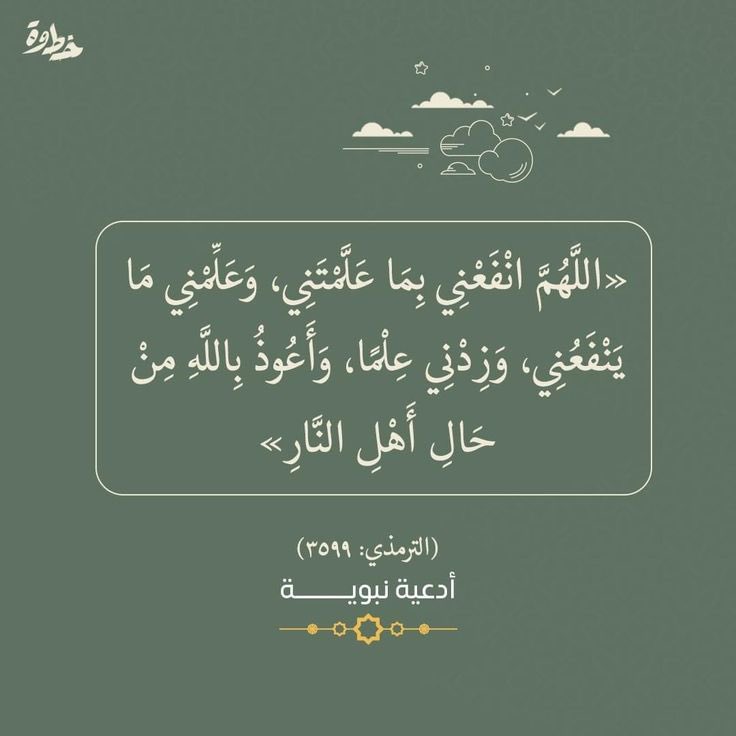 خطوة
«اللَّهُمَّ انْفَعْنِي بِمَا عَلَّمْتَنِي، وَعَلِّمْنِي مَا
يَنْفَعُنِي، وَزِدْنِي عِلْمًا، وَأَعُوذُ بِاللَّهِ مِنْ
حَالِ أَهْلِ النَّارِ»
(الترمذي: ٣٥٩٩)
أدعية نبويـــــــة